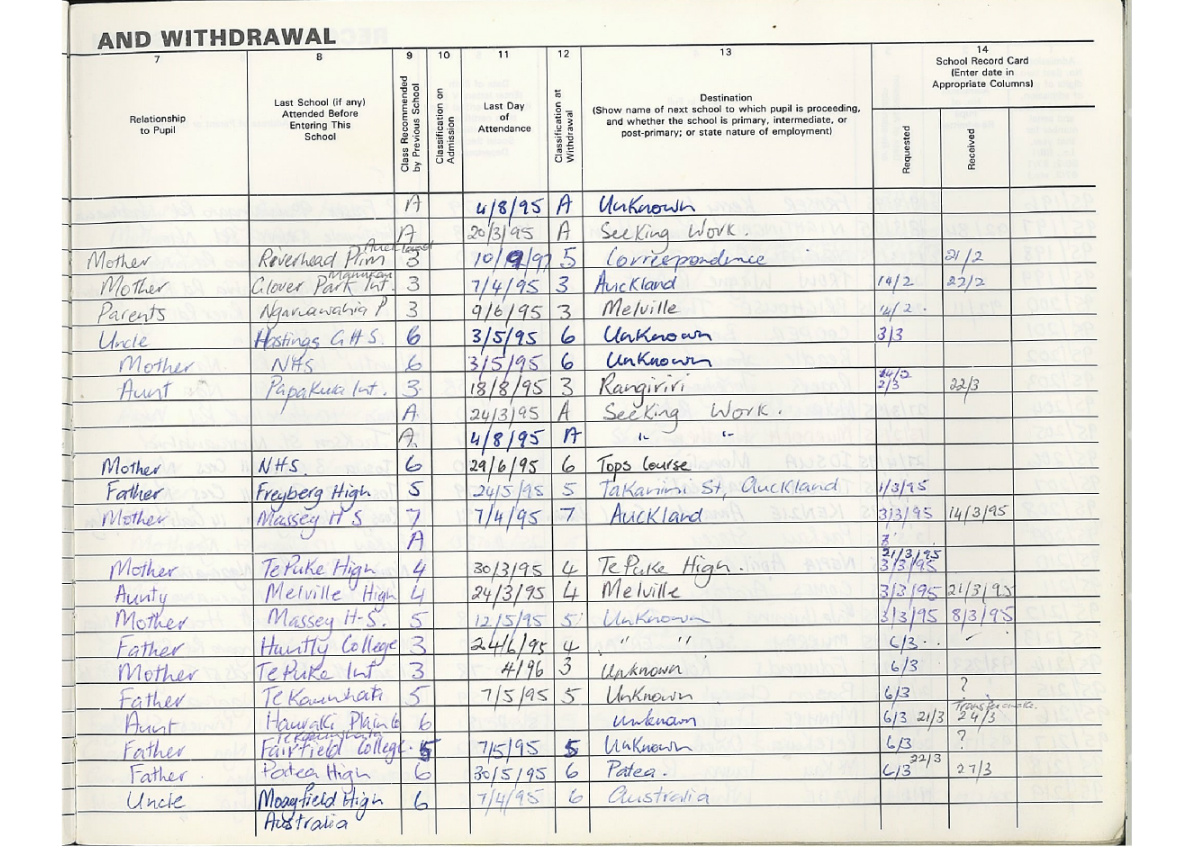 AND WITHDRAWAL
7 8 9 10 11 12 13 14
Relationship to Pupil
Last School (if any) Attended Before Entering This School
Class Recommended by Previous School
Classification on Admission
Last Day of Attendance
Classification at Withdrawal
Destination (Show name of next school to which pupil is proceeding, and whether the school is primary, intermediate, or post-primary; or state nature of employment)
School Record Card (Enter date in Appropriate Columns)
Requested
Received
A 4/8/95 A Unknown
A 20/3/95 A Seeking Work.
Mother Riverhead Prim Auckland 3 10/9/97 5 Correspondence 21/2
Mother Glover Park Int. 3 7/4/95 3 Auckland 14/2 22/2
Parents Ngaruawahia P 3 9/6/95 3 Melville 14/2.
Uncle Hastings G H S. 6 3/5/95 6 Unknown 3/3
Mother NHS 6 3/5/95 6 Unknown
Aunt Papakura Int. 3 18/8/95 3 Rangiriri 24/2 2/3 22/3
A. 24/3/95 A Seeking Work.
A. 4/8/95 A " "
Mother NHS 6 29/6/95 6 Tops Course
Father Freyberg High 5 24/5/95 5 Takanini St, Auckland 1/3/95
Mother Massey H S 7 7/4/95 7 Auckland 3/3/95 14/3/95
A
Mother Te Puke High 4 30/3/95 4 Te Puke High. 21/3/95 3/3/95
Aunty Melville High 4 24/3/95 4 Melville 3/3/95 21/3/95
Mother Massey H-S. 5 12/5/95 5 Unknown 3/3/95 8/3/95
Father Huntly College 3 24/6/95 4 " " 6/3
Mother Te Puke Int 3 4/96 3 Unknown 6/3
Father Te Kauwhata 5 7/5/95 5 Unknown 6/3 ?
Aunt Hauraki Plains 6 Unknown 6/3 21/3 24/3
Father Te Kauwhata Fairfield College. 5 7/5/95 5 Unknown 6/3 ?
Father Patea High 6 30/5/95 6 Patea. 6/3 22/3 27/3
Uncle High Australia 6 7/4/95 6 Australia